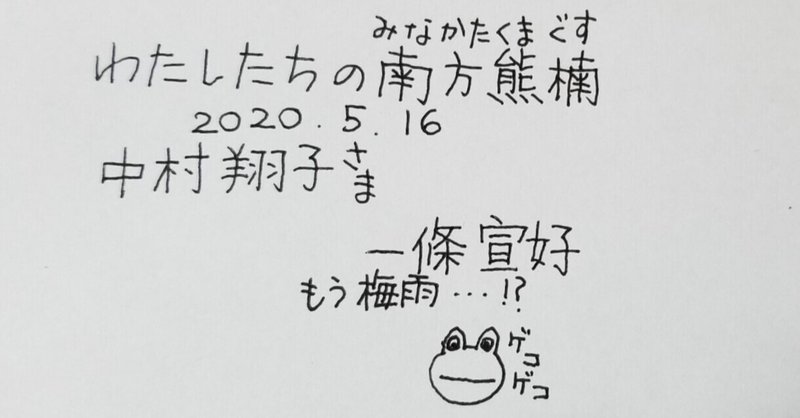 みなかたくまぐす
わたしたちの南方熊楠
2020.5.16
中村翔子さま
一條宣好
もう梅雨…!?
ゲコ
ゲコ